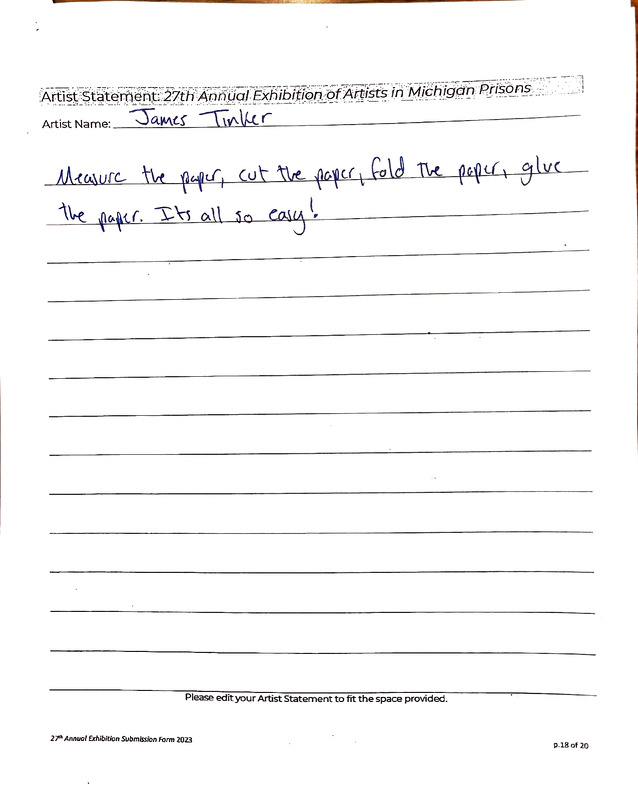 Artist Statement: 27th Annual Exhibition of Artists in Michigan Prisons
Artist Name: James Tinker
Measure the paper, cut the paper, fold the paper, glue
the paper. Its all so easy!
Please edit your Artist Statement to fit the space provided.
27th Annual Exhibition Submission Form 2023
p.18 of 20